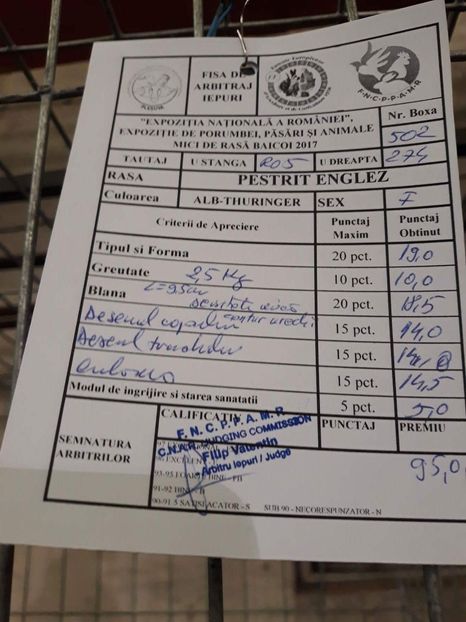 FISA DE
ARBITRAJ
IEPURI
F-N-C-P-P-A-M-R
"EXPOZIȚIA NAȚIONALĂ A ROMÂNIEI",
EXPOZIȚIE DE PORUMBEI, PĂSĂRI ȘI ANIMALE
MICI DE RASĂ BAICOI 2017
Nr. Boxa
502
TATAJ U STANGA RO5 U DREAPTA 274
RASA PESTRIT ENGLEZ
Culoarea ALB-THURINGER SEX F
Criterii de Apreciere Punctaj Maxim Punctaj Obtinut
Tipul si Forma 20 pct. 19,0
Greutate 2,5 Kg 10 pct. 10,0
Blana L=9,5cm 20 pct. 18,5
Desenul capului contur urechi 15 pct. 14,0
Desenul trunchiului 15 pct. 14,0
culoarea 15 pct. 14,5
Modul de ingrijire si starea sanatatii 5 pct. 5,0
SEMNATURA
ARBITRILOR
CALIFICATIV PUNCTAJ PREMIU
95,0
F. N. C. P. P. A. M-R
C.N.A.R. JUDGING COMMISSION
Filip Valentin
Arbitru Iepuri / Judge
91-92 BINE - B
90-91.5 SATISFACATOR - S SUB 90 - NECORESPUNZATOR - N